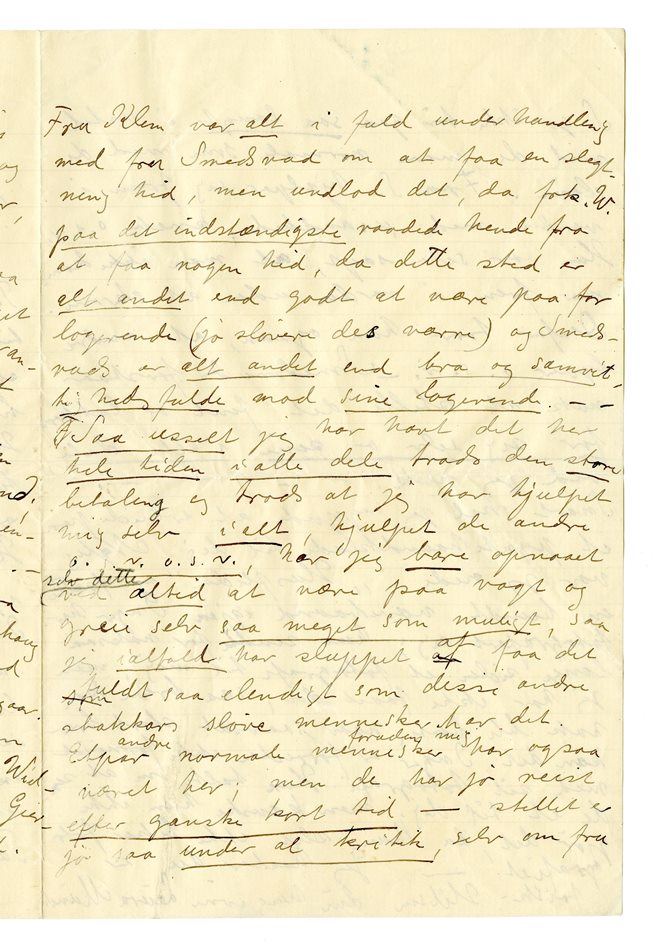 Fru Klem var alt i fuld underhandling
med fru Smedsvad om at faa en slegt-
ning hid, men undlod det, da frk. W.
paa det indstændigste raadede hende fra
at faa nogen hid, da dette sted er
alt andet end godt at være paa for
logerende (jo sløvere des værre) og Smeds-
vads er alt andet end bra og samvit-
tighedsfulde mod sine logerende. – –
Saa usselt jeg har havt det her
hele tiden i alle dele trods den store
betaling og trods at jeg har hjulpet
mig selv i alt, hjulpet de andre
o. s. v. o. s. v., har jeg bare opnaaet
selv dette
ved altid at være paa vagt og
greie selv saa meget som muligt, saa
jeg ialfald har sluppet at faa det
som fuldt saa elendigt som disse andre
stakkars sløve mennesker har det.
Etpar andre normale mennesker foruden mig har ogsaa
været her; men de har jo reist
efter ganske kort tid — stellet er
jo saa under al kritik, selv om fru
og
r,
et
ran-
nd.
én-
hang
d
gaar.
Wid-
Gier-
t.